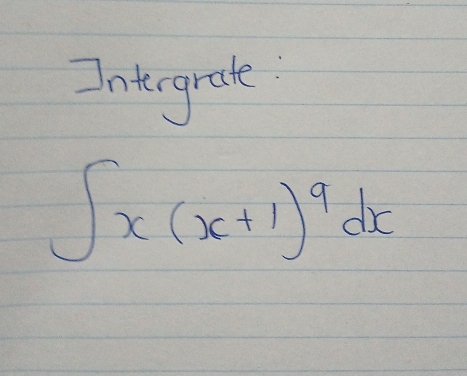 Intergrate:
∫x(x+1)⁹dx